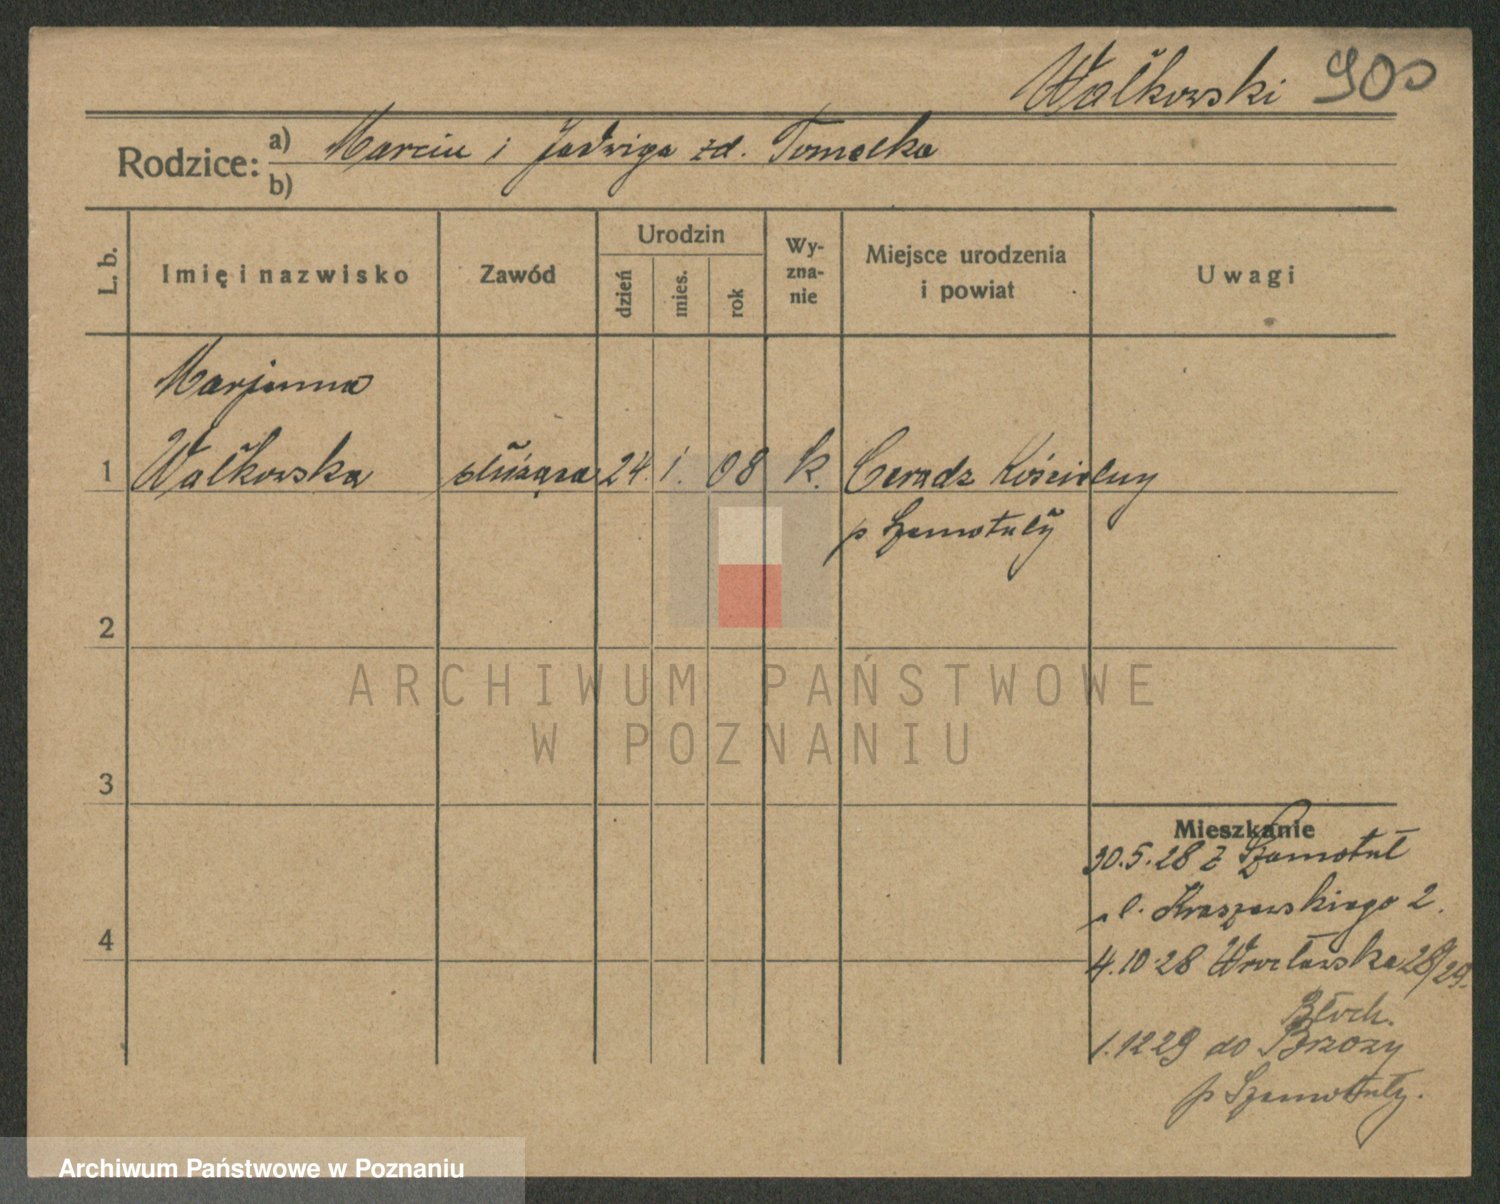 Wałkowski 900
Rodzice: a) Marcin i Jadwiga zd. Tomelka
b)
L. b. Imię i nazwisko Zawód Urodzin dzień mies. rok Wyznanie Miejsce urodzenia i powiat Uwagi
Marjanna
1 Wałkowska służąca 24. 1. 08 k. Ceradz Kościelny
p Szamotuły
2
ARCHIWUM PAŃSTWOWE
W POZNANIU
3
Mieszkanie
30.5.28 z Szamotuł
ul. Kraszewskiego 2.
4
4.10.28 Wrocławska 28/29.
Błoch.
1.12 29 do Brzozy
p Szamotuły.
Archiwum Państwowe w Poznaniu